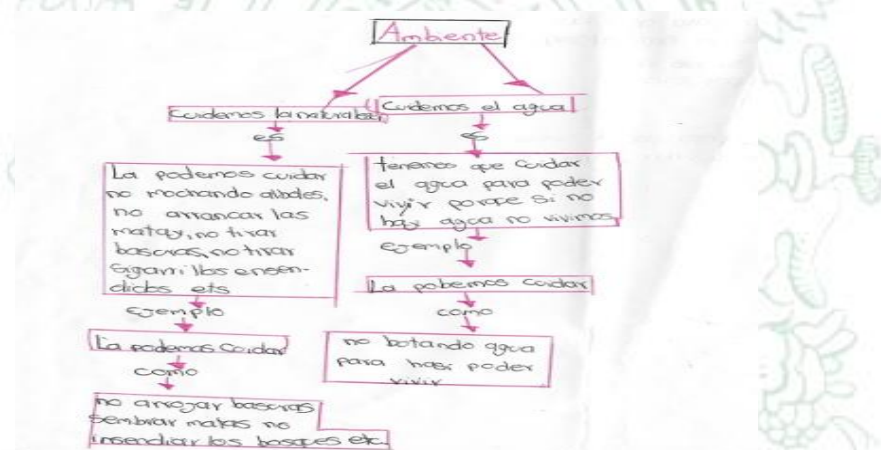 Ambiente
Cuidemos la naturaleza
es
La podemos cuidar
no mochando arboles,
no arrancar las
matas, no tirar
basuras, no tirar
sigarrillos ensen-
didos ets
Ejemplo
La podemos cuidar
como
no arrojar basuras
sembrar matas no
insendiar los bosques etc.
Cuidemos el agua
es
tenemos que cuidar
el agua para poder
vivir porque si no
hay agua no vivimos
ejemplo
La pobemos cuidar
como
no botando agua
para hasi poder
vivir